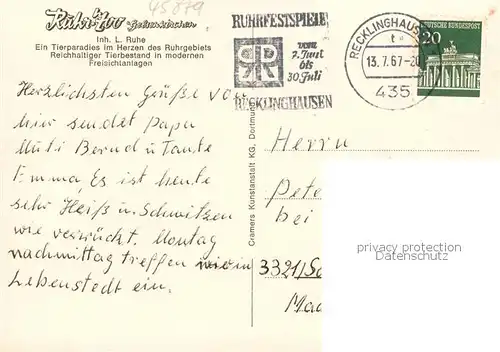 45879
Ruhr-Zoo Gelsenkirchen
Inh. L. Ruhe
Ein Tierparadies im Herzen des Ruhrgebiets
Reichhaltiger Tierbestand in modernen
Freisichtanlagen
RUHRFESTSPIELE
vom
2. Juni
bis
30. Juli
RECKLINGHAUSEN
RECKLINGHAUS
t
13.7.67-20
435
DEUTSCHE BUNDESPOST
20
Herzlichsten Grüße von
hier sendet Papa
Muti Bernd u Tante
Emma, Es ist heute
sehr Heiß u. Schwitzen
wie verrückt. Montag
nachmittag treffen wir in
Lebenstedt ein.
Cramers Kunstanstalt KG, Dortmund
Herrn
Pete
bei
3321/Sa
Maa
privacy protection
Datenschutz